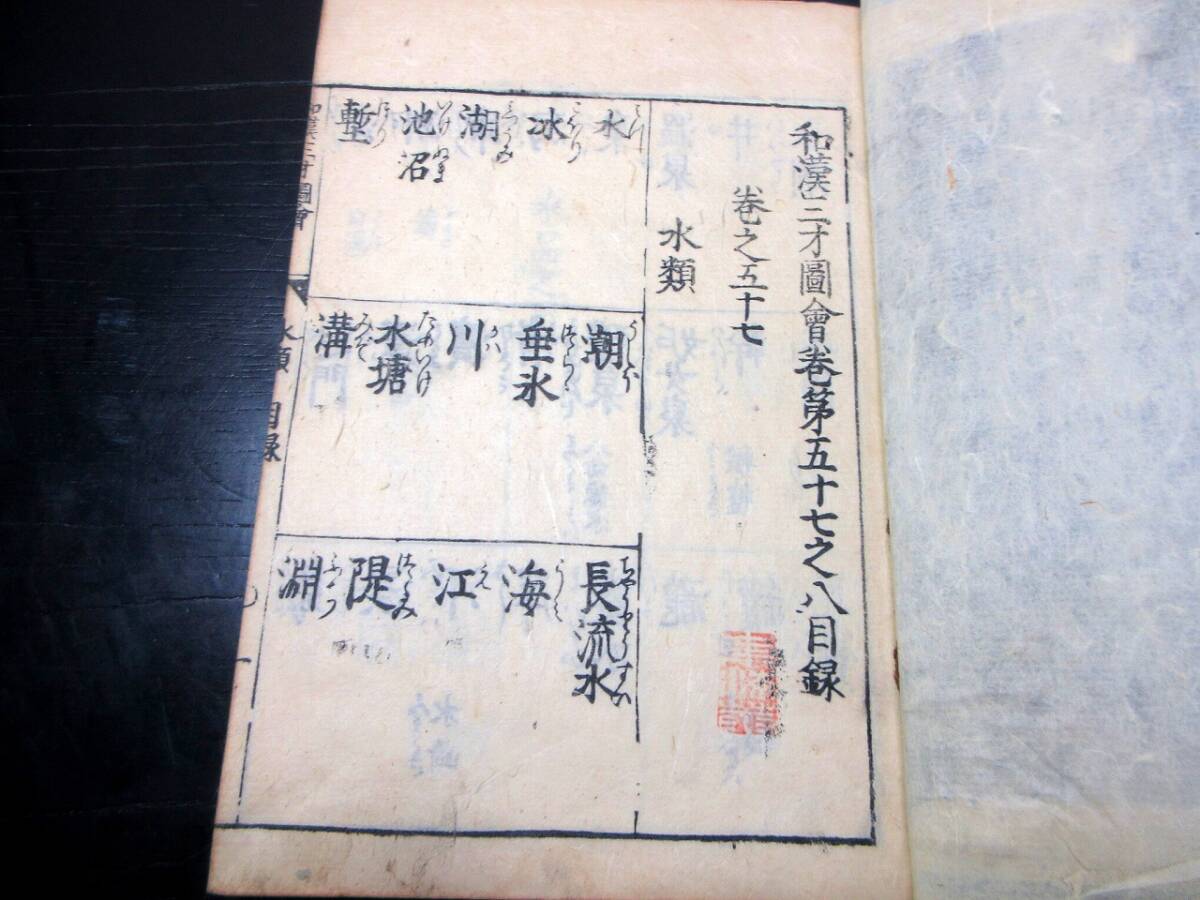 和漢三才圖會卷第五十七之八目録
卷之五十七
水類
水 みつ
冰 こほり
湖 みつうみ
池沼 いけ ぬま
塹 ほり
潮 うしほ
垂氷 つらゝ
川 かハ
水塘 ためいけ
溝 みぞ
長流水 ちやうりうすい
海 うみ
江 え
隄 つゝみ
淵 ふち
和漢三才圖會
水類 目録
一